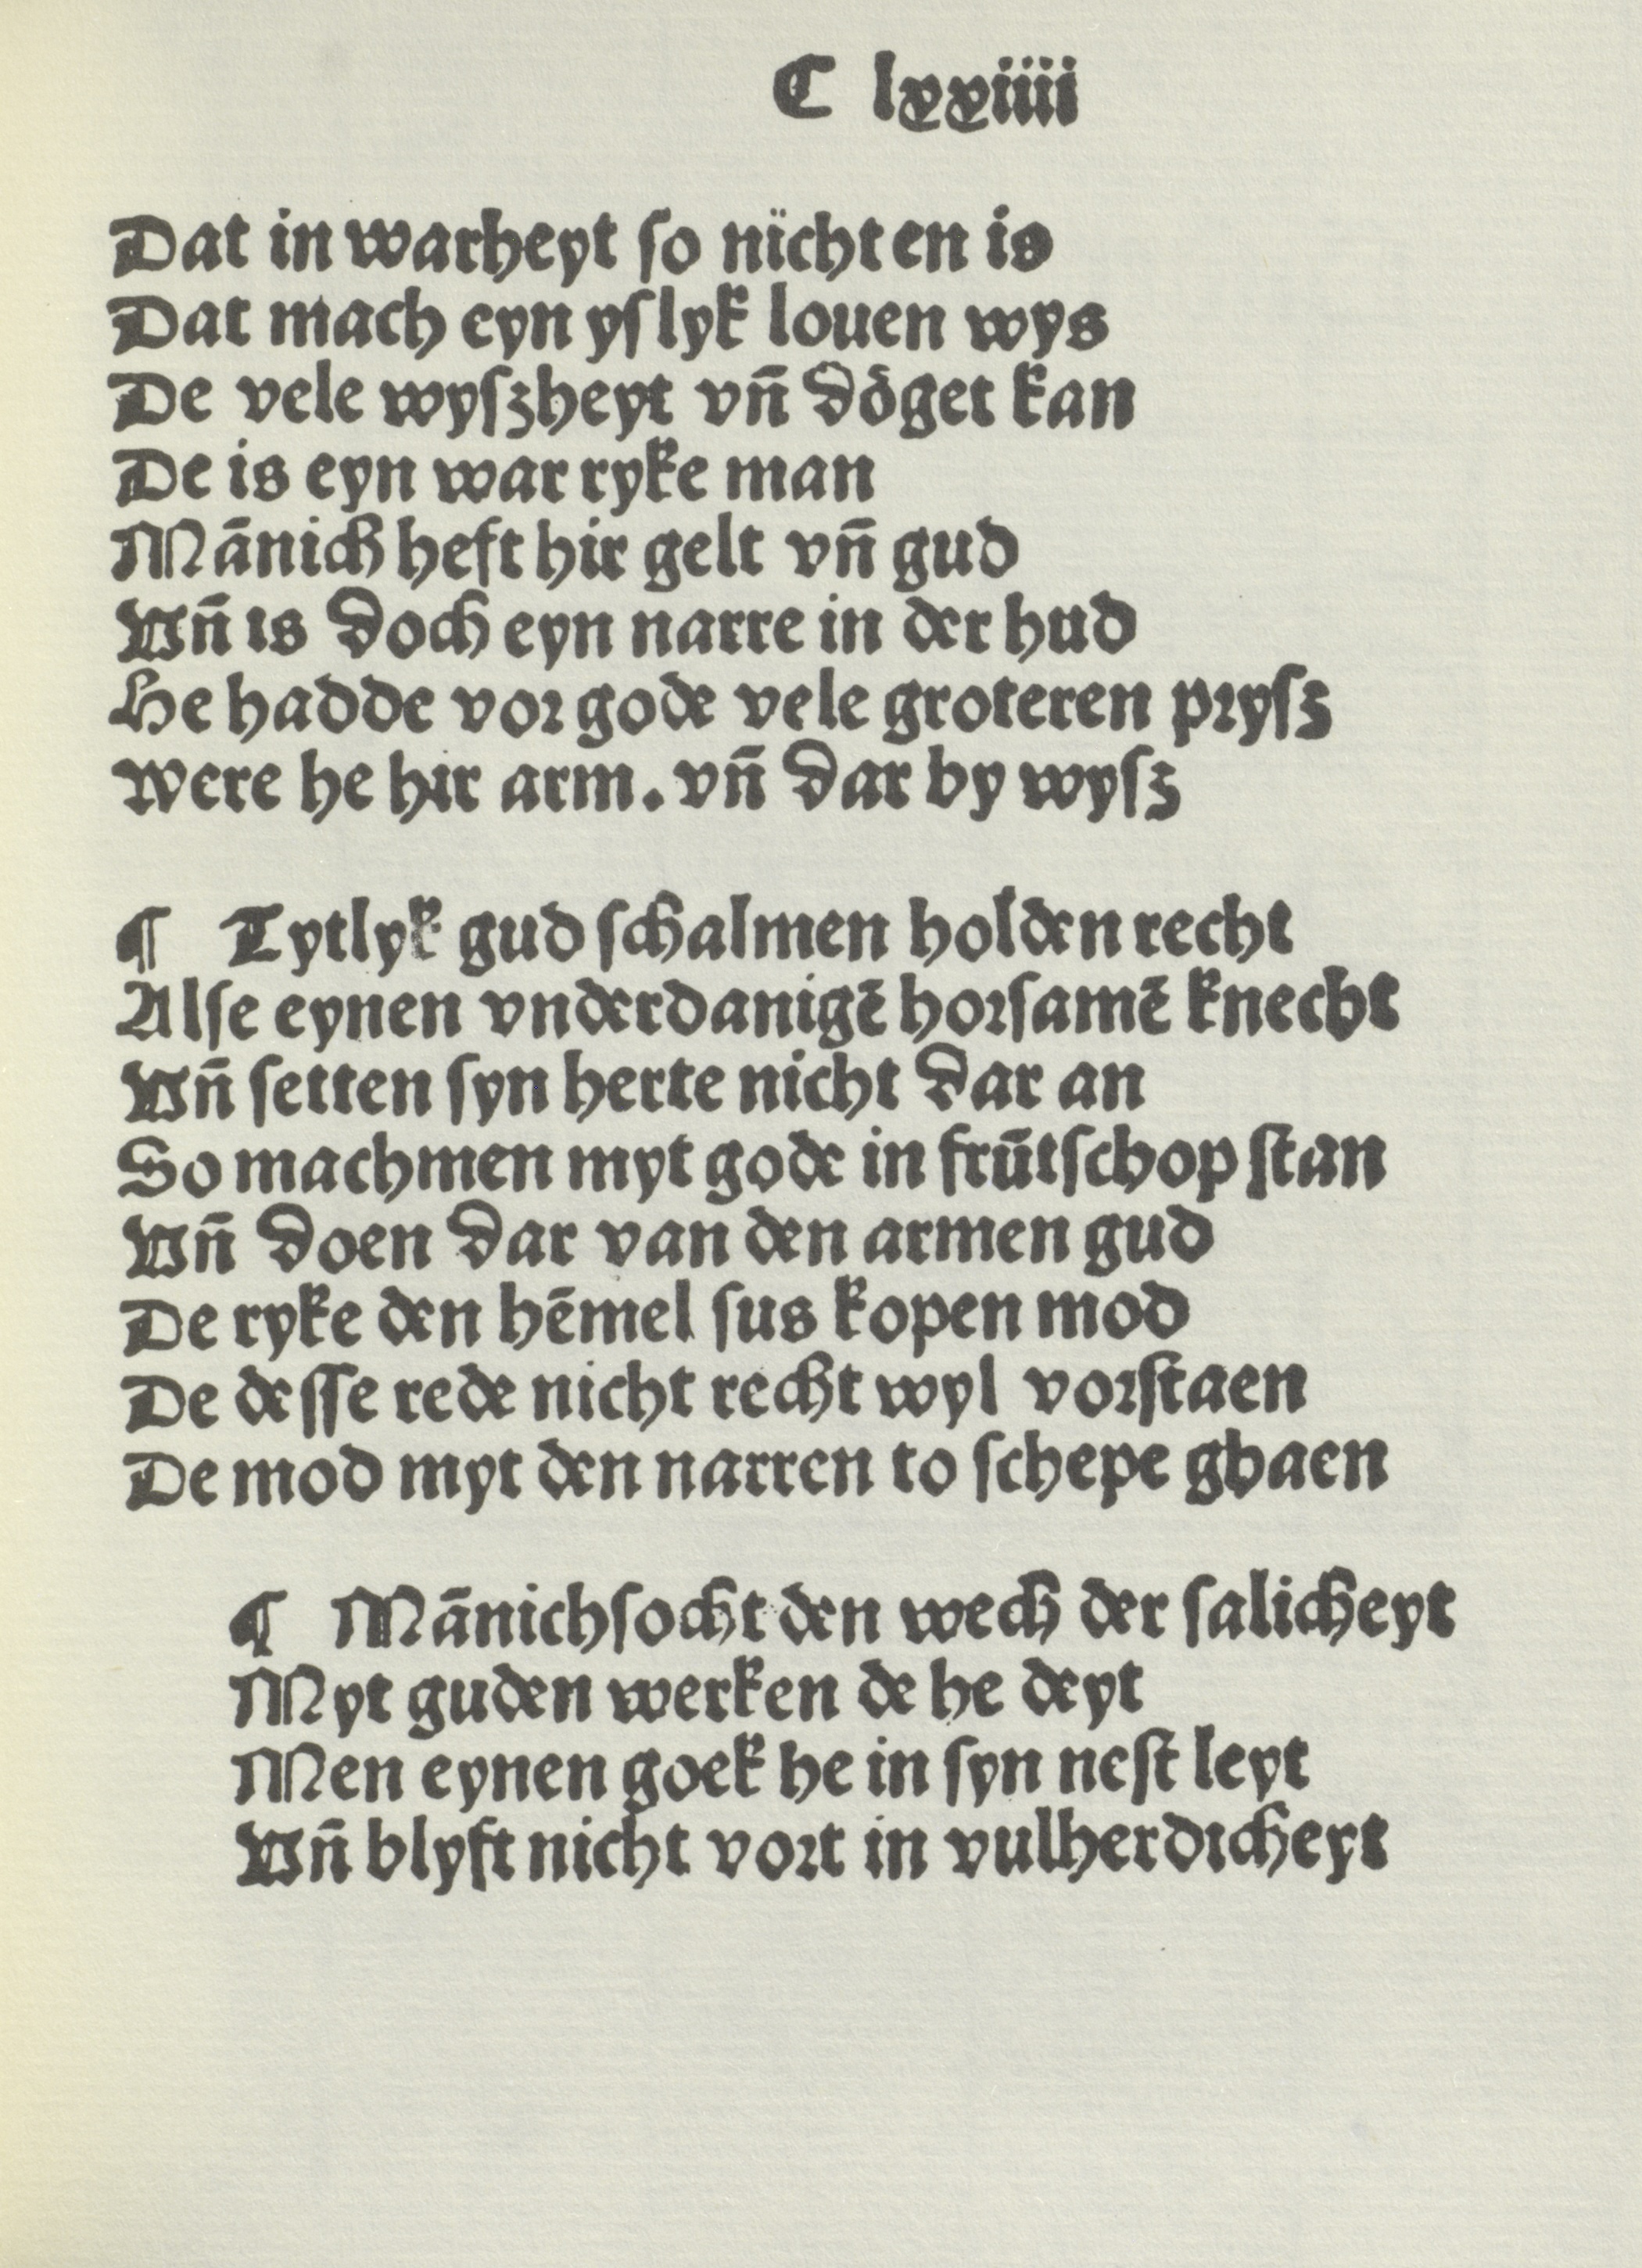 C lxxiiii
Dat in warheyt ſo nicht en is
Dat mach eyn yſlyk louen wys
De vele wyſzheyt vn̄ doͤget kan
De is eyn war ryke man
Mānich heft hir gelt vn̄ gud
Vn̄ is doch eyn narre in der hud
He hadde vor gode vele groteren pryſz
Were he hir arm. vn̄ dar by wyſz
¶ Tytlyk gud ſchalmen holden recht
Alſe eynen vnderdanigē horſamē knecht
Vn̄ ſetten ſyn herte nicht dar an
So machmen myt gode in frūtſchop ſtan
Vn̄ doen dar van den armen gud
De ryke den hēmel ſus kopen mod
De deſſe rede nicht recht wyl vorſtaen
De mod myt den narren to ſchepe ghaen
¶ Mānich ſocht den wech der ſalicheyt
Myt guden werken de he deyt
Men eynen goek he in ſyn neſt leyt
Vn̄ blyft nicht vort in vulherdicheyt